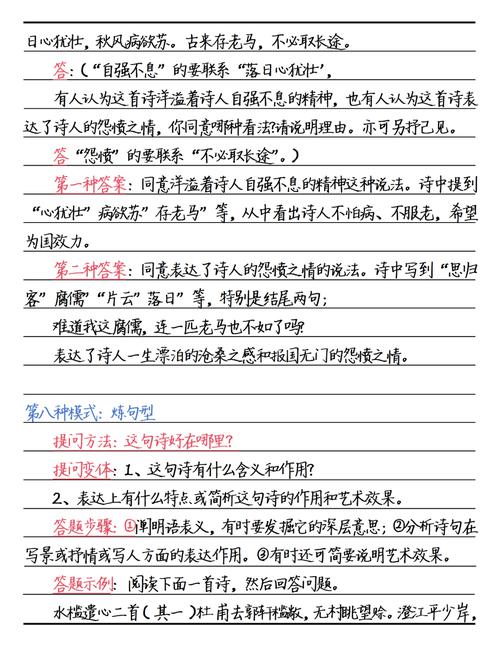 日心犹壮，秋风病欲苏。古来存老马，不必取长途。
答：(“自强不息”的要联系“落日心犹壮’，
有人认为这首诗洋溢着诗人自强不息的精神，也有人认为这首诗表
达了诗人的怨愤之情，你同意哪种看法?请说明理由。亦可另抒己见。
答“怨愤”的要联系“不必取长途”。)
第一种答案：同意洋溢着诗人自强不息的精神这种说法。诗中提到
“心犹壮”病欲苏”存老马”等，从中看出诗人不怕病、不服老，希望
为国效力。
第二种答案：同意表达了诗人的怨愤之情的说法。诗中写到“思归
客”腐儒”“片云”落日”等，特别是结尾两句；
难道我这腐儒，连一匹老马也不如了吗?
表达了诗人一生漂泊的沧桑之感和报国无门的怨愤之情。
第八种模式：炼句型
提问方法：这句诗好在哪里?
提问变体：1、这句诗有什么含义和作用?
2、表达上有什么特点或简析这句诗的作用和艺术效果。
答题步骤：①阐明语表义，有时要发掘它的深层意思；②分析诗句在
写景或抒情或写人方面的表达作用。③有时还可简要说明艺术效果。
答题示例：阅读下面一首诗，然后回答问题。
水槛遣心二首(其一)杜甫去郭轩槛敞，无村眺望赊。澄江平少岸，